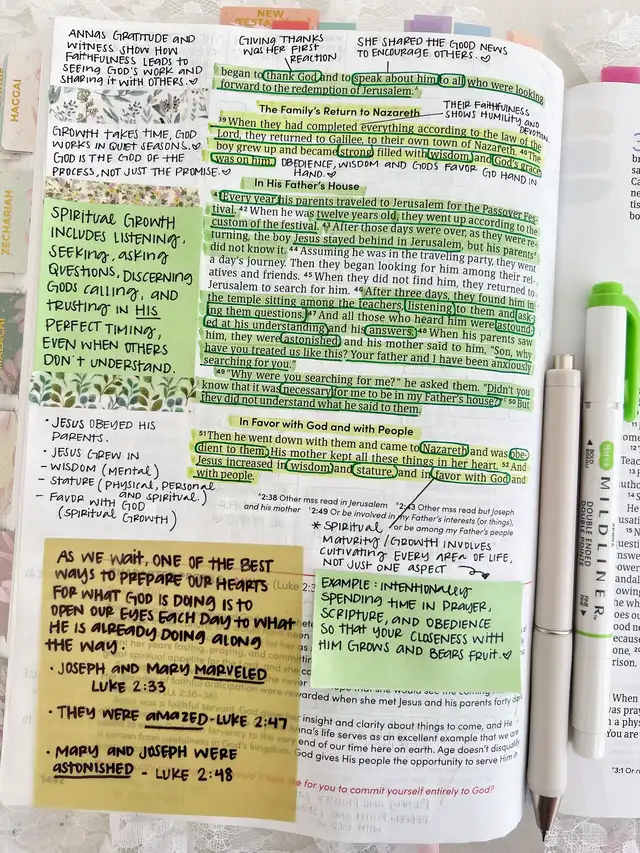 NEW
TESTAMENT
HAGGAI
ZECHARIAH
MALACHI
ANNAS GRATITUDE AND
WITNESS SHOW HOW
FAITHFULNESS LEADS TO
SEEING GOD'S WORK AND
SHARING IT WITH OTHERS.
GIVING THANKS
WAS HER FIRST
REACTION
SHE SHARED THE GOOD NEWS
TO ENCOURAGE OTHERS.
began to thank God and to speak about him to all who were looking
forward to the redemption of Jerusalem.
The Family's Return to Nazareth
THEIR FAITHFULNESS
SHOWS HUMILITY AND
DEVOTION
39 When they had completed everything according to the law of the
Lord, they returned to Galilee, to their own town of Nazareth. 40 The
boy grew up and became strong, filled with wisdom, and God's grace
was on him.
OBEDIENCE, WISDOM AND GOD'S FAVOR GO HAND IN
HAND.
GROWTH TAKES TIME, GOD
WORKS IN QUIET SEASONS.
GOD IS THE GOD OF THE
PROCESS, NOT JUST THE PROMISE.
In His Father's House
41 Every year his parents traveled to Jerusalem for the Passover Fes-
tival. 42 When he was twelve years old, they went up according to the
custom of the festival. 43 After those days were over, as they were re-
turning, the boy Jesus stayed behind in Jerusalem, but his parents
did not know it. 44 Assuming he was in the traveling party, they went
a day's journey. Then they began looking for him among their rel-
atives and friends. 45 When they did not find him, they returned to
Jerusalem to search for him. 46 After three days, they found him in
the temple sitting among the teachers, listening to them and ask-
ing them questions. 47 And all those who heard him were astound-
ed at his understanding and his answers. 48 When his parents saw
him, they were astonished, and his mother said to him, "Son, why
have you treated us like this? Your father and I have been anxiously
searching for you."
49 "Why were you searching for me?" he asked them. "Didn't you
know that it was necessary for me to be in my Father's house?" 50 But
they did not understand what he said to them.
SPIRITUAL GROWTH
INCLUDES LISTENING,
SEEKING, ASKING
QUESTIONS, DISCERNING
GODS CALLING, AND
TRUSTING IN HIS
PERFECT TIMING,
EVEN WHEN OTHERS
DON'T UNDERSTAND.
In Favor with God and with People
51 Then he went down with them and came to Nazareth and was obe-
dient to them. His mother kept all these things in her heart. 52 And
Jesus increased in wisdom and stature, and in favor with God and
with people.
• JESUS OBEYED HIS
PARENTS.
• JESUS GREW IN
- WISDOM (MENTAL)
- STATURE (PHYSICAL, PERSONAL
AND SPIRITUAL.)
- FAVOR WITH GOD
(SPIRITUAL GROWTH)
*2:38 Other mss read in Jerusalem
*2:43 Other mss read but Joseph
and his mother
*2:49 Or be involved in my Father's interests (or things),
or be among my Father's people
* SPIRITUAL
MATURITY/GROWTH INVOLVES
CULTIVATING EVERY AREA OF LIFE,
NOT JUST ONE ASPECT
EXAMPLE: INTENTIONALLY
SPENDING TIME IN PRAYER,
SCRIPTURE, AND OBEDIENCE
SO THAT YOUR CLOSENESS WITH
HIM GROWS AND BEARS FRUIT.
AS WE WAIT, ONE OF THE BEST
WAYS TO PREPARE OUR HEARTS
FOR WHAT GOD IS DOING IS TO
OPEN OUR EYES EACH DAY TO WHAT
HE IS ALREADY DOING ALONG
THE WAY.
• JOSEPH AND MARY MARVELED
LUKE 2:33
• THEY WERE AMAZED - LUKE 2:47
• MARY AND JOSEPH WERE
ASTONISHED - LUKE 2:48
(Luke 2:3
rewarded when she met Jesus and his parents forty days
insight and clarity about things to come, and He
life serves as an excellent example that we are
end of our time here on earth. Age doesn't disqualify
God gives His people the opportunity to serve Him in
for you to commit yourself entirely to God?
MILDLINER
DOUBLE ENDED